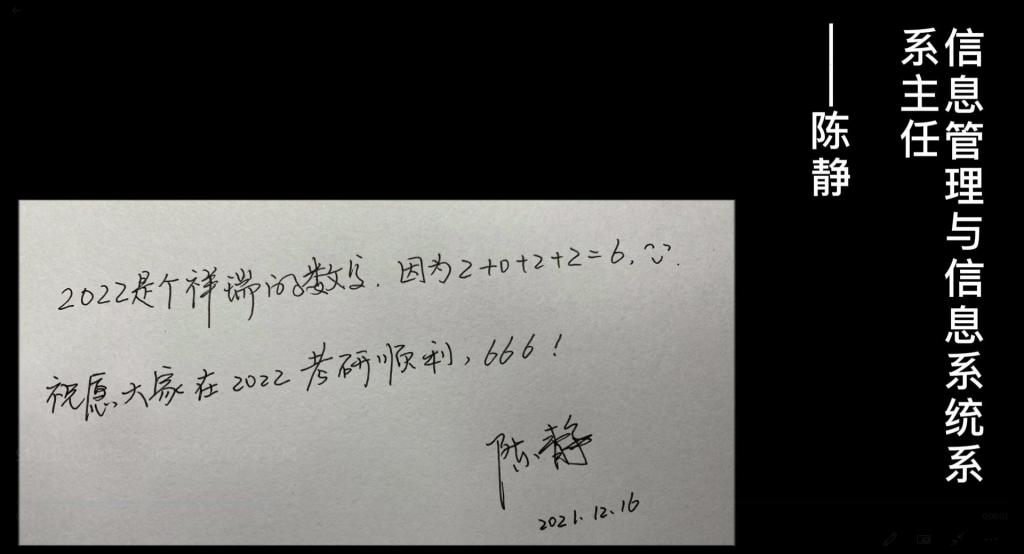 信息管理与信息系统系
系主任
——陈静
2022是个祥瑞的数字.因为2+0+2+2=6,
祝愿大家在2022考研顺利,666!
陈静
2021.12.16